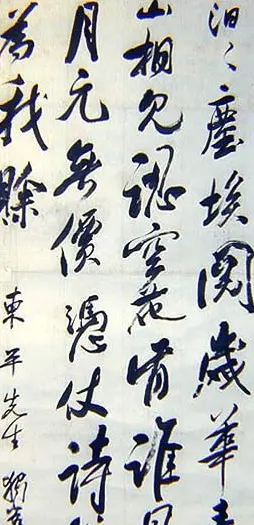 汩々塵埃閱歲華
山相見認空花誰
月元無價憑仗詩
為我賒
東平先生